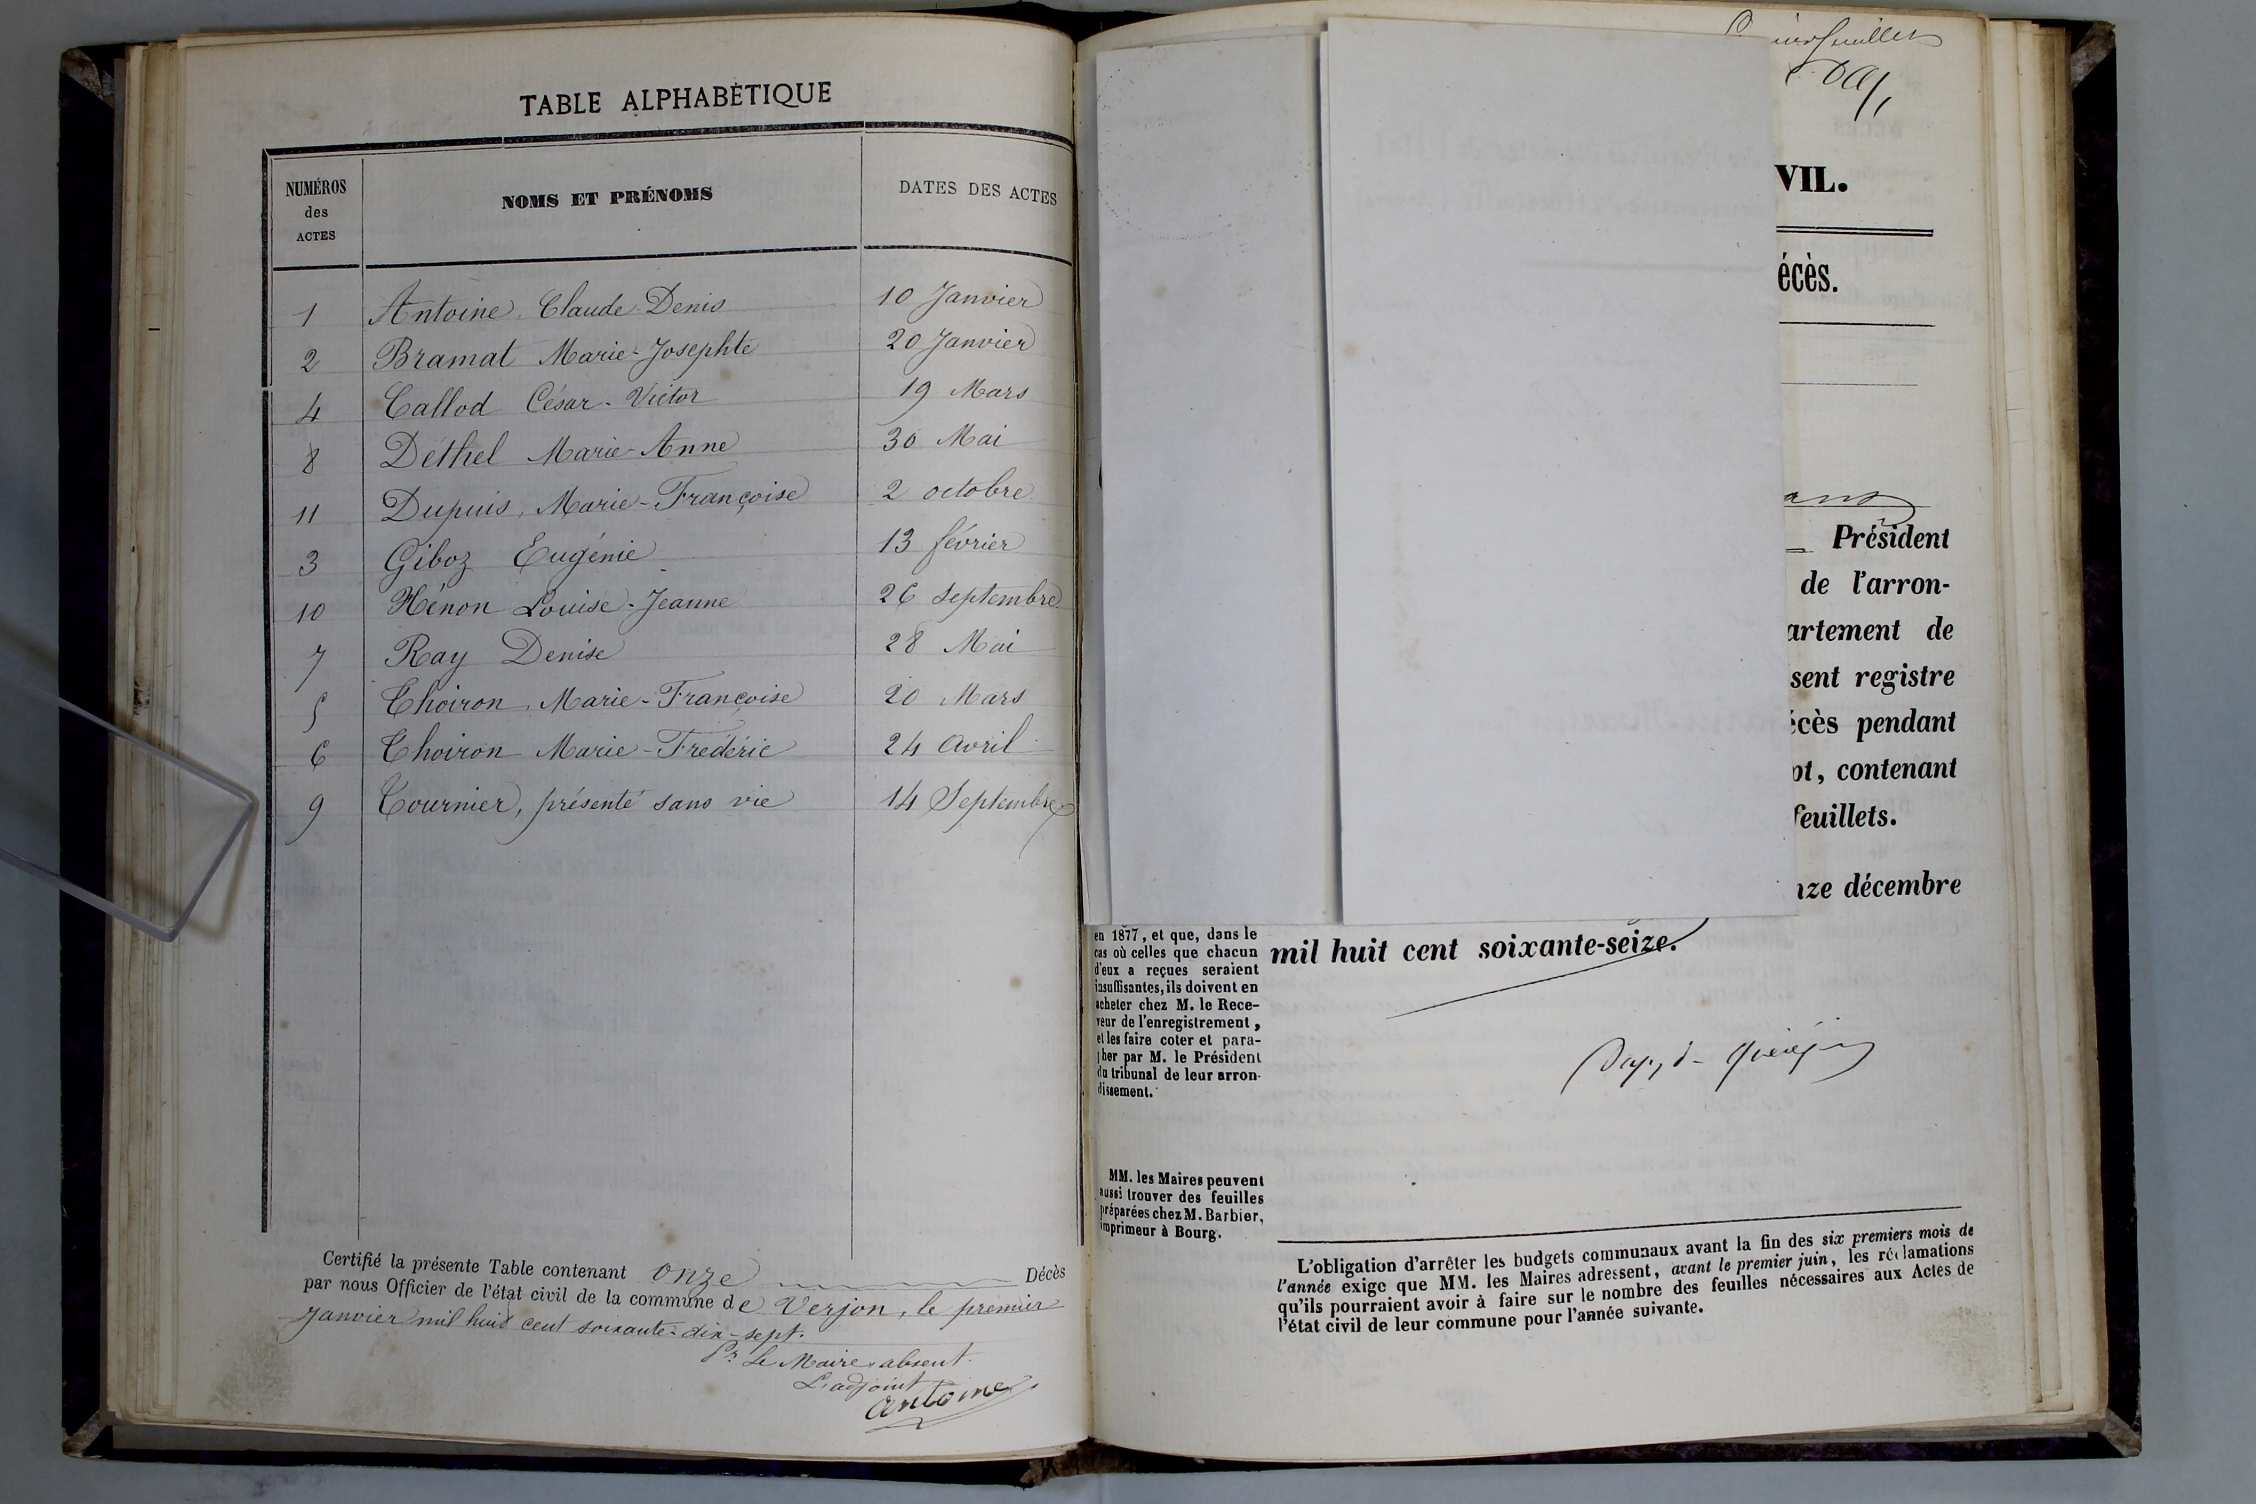 TABLE ALPHABÉTIQUE
NUMÉROS des ACTES NOMS ET PRÉNOMS DATES DES ACTES
1 Antoine Claude Denis 10 Janvier
2 Bramat Marie-Josephte 20 Janvier
4 Callod César-Victor 19 Mars
8 Déthel Marie-Anne 30 Mai
11 Dupuis, Marie-Françoise 2 octobre
3 Giboz Eugénie 13 février
10 Hénon Louise-Jeanne 26 Septembre
7 Ray Denise 28 Mai
5 Thoiron, Marie-Françoise 20 Mars
6 Thoiron Marie-Frédéric 24 Avril
9 Tournier, présenté sans vie 14 Septembre
Certifié la présente Table contenant onze Décès
par nous Officier de l'état civil de la commune de Verjon, le premier
Janvier mil huit cent soixante-dix-sept.
Pr Le Maire absent
L'adjoint
Antoine
feuillet
VIL.
écès.
Président
de l'arron-
artement de
sent registre
écès pendant
pt, contenant
feuillets.
nze décembre
mil huit cent soixante-seize.
en 1877, et que, dans le
cas où celles que chacun
d'eux a reçues seraient
insuffisantes, ils doivent en
acheter chez M. le Rece-
veur de l'enregistrement,
et les faire coter et para-
pher par M. le Président
du tribunal de leur arron-
dissement.
MM. les Maires peuvent
aussi trouver des feuilles
préparées chez M. Barbier,
imprimeur à Bourg.
L'obligation d'arrêter les budgets communaux avant la fin des six premiers mois de
l'année exige que MM. les Maires adressent, avant le premier juin, les réclamations
qu'ils pourraient avoir à faire sur le nombre des feuilles nécessaires aux Actes de
l'état civil de leur commune pour l'année suivante.